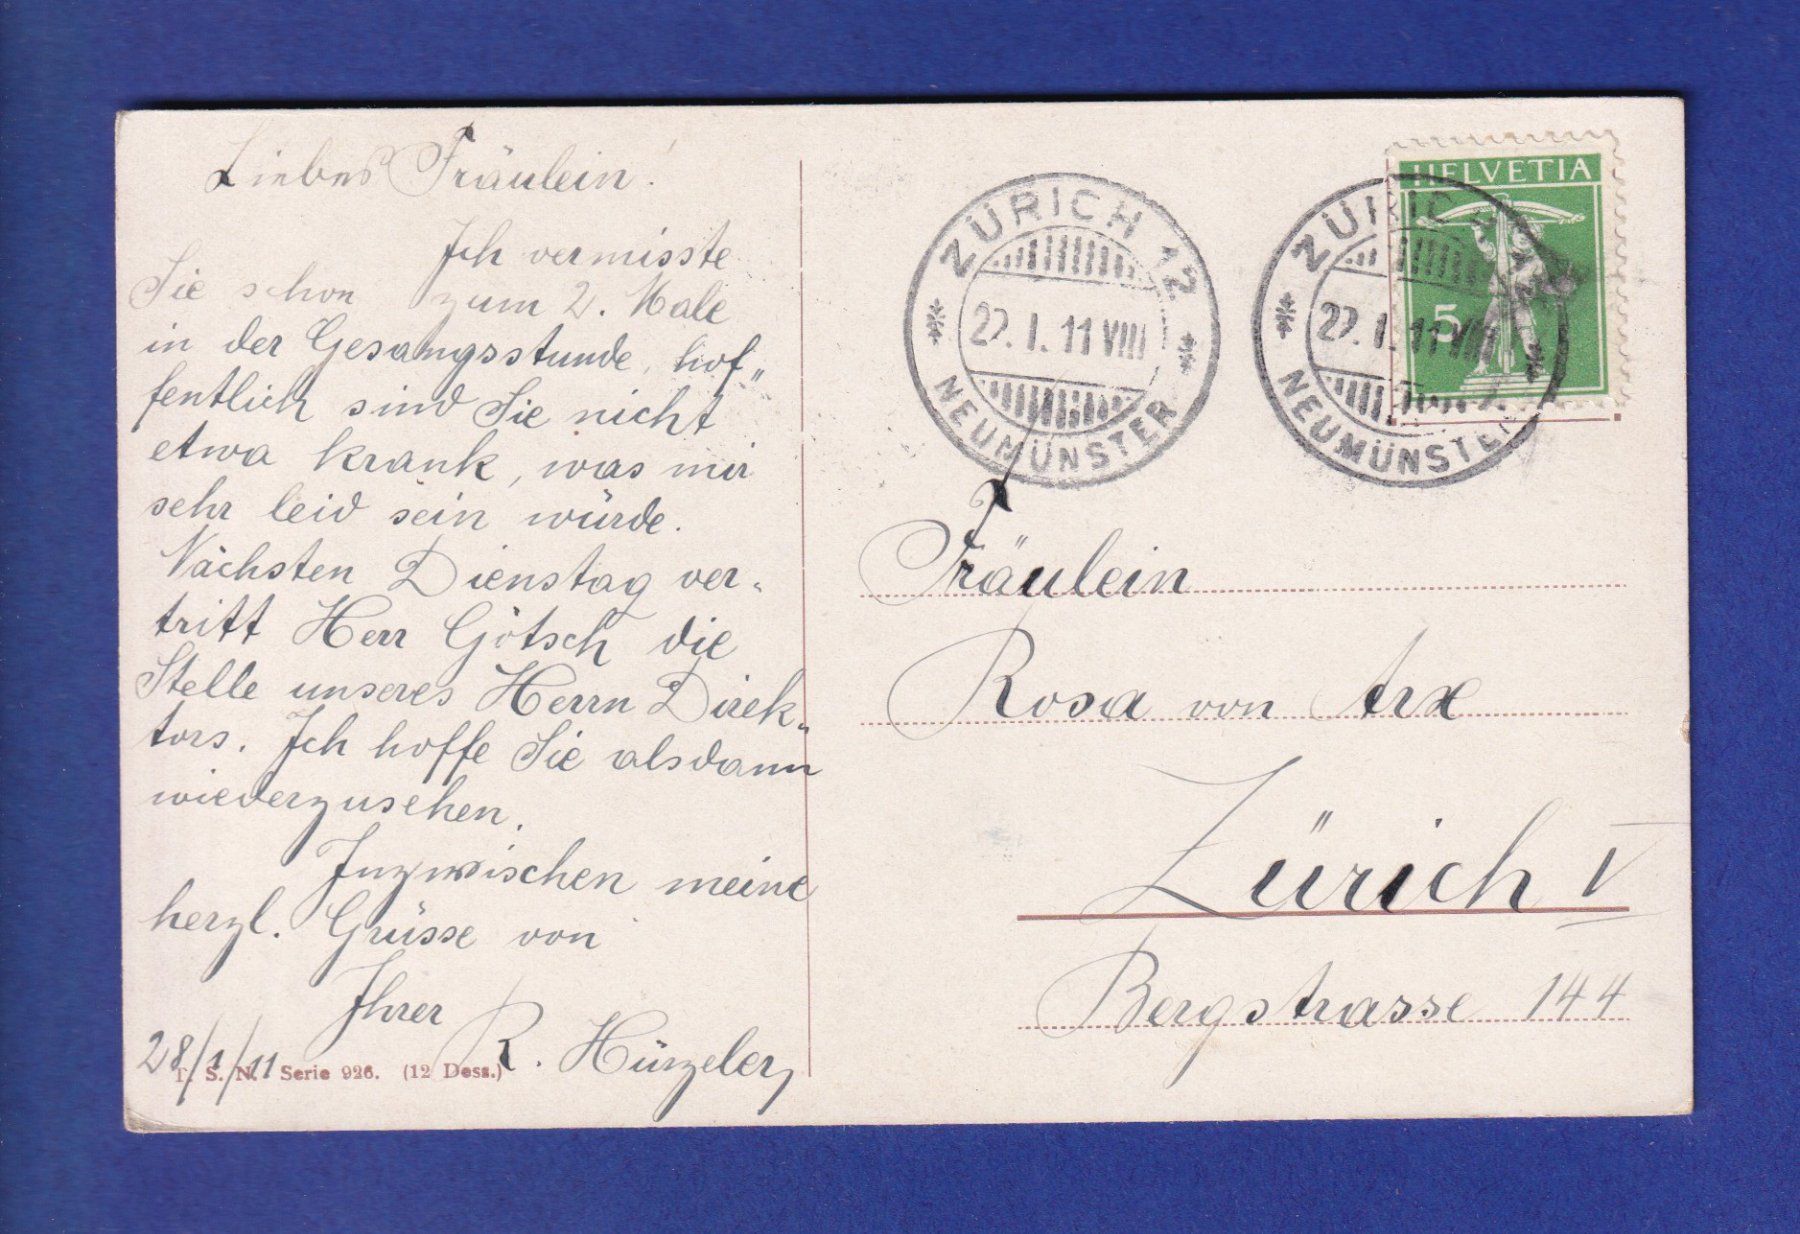 Liebes Fräulein!
Ich vermisste
Sie schon zum 2. Male
in der Gesangsstunde, hof„
fentlich sind Sie nicht
etwa krank, was mir
sehr leid sein würde.
Nächsten Dienstag ver-
tritt Herr Götsch die
Stelle unseres Herrn Direk-
tors. Ich hoffe Sie alsdann
wiederzusehen.
Inzwischen meine
herzl. Grüsse von
Ihrer R. Hürzeler,
28/1/11
T. S. N. Serie 926. (12 Dess.)
ZÜRICH 12
22. I. 11 VIII
NEUMÜNSTER
ZÜRICH 12
22. I. 11 VIII
NEUMÜNSTER
HELVETIA
5
Fräulein
Rosa von Arx
Zürich V
Bergstrasse 144